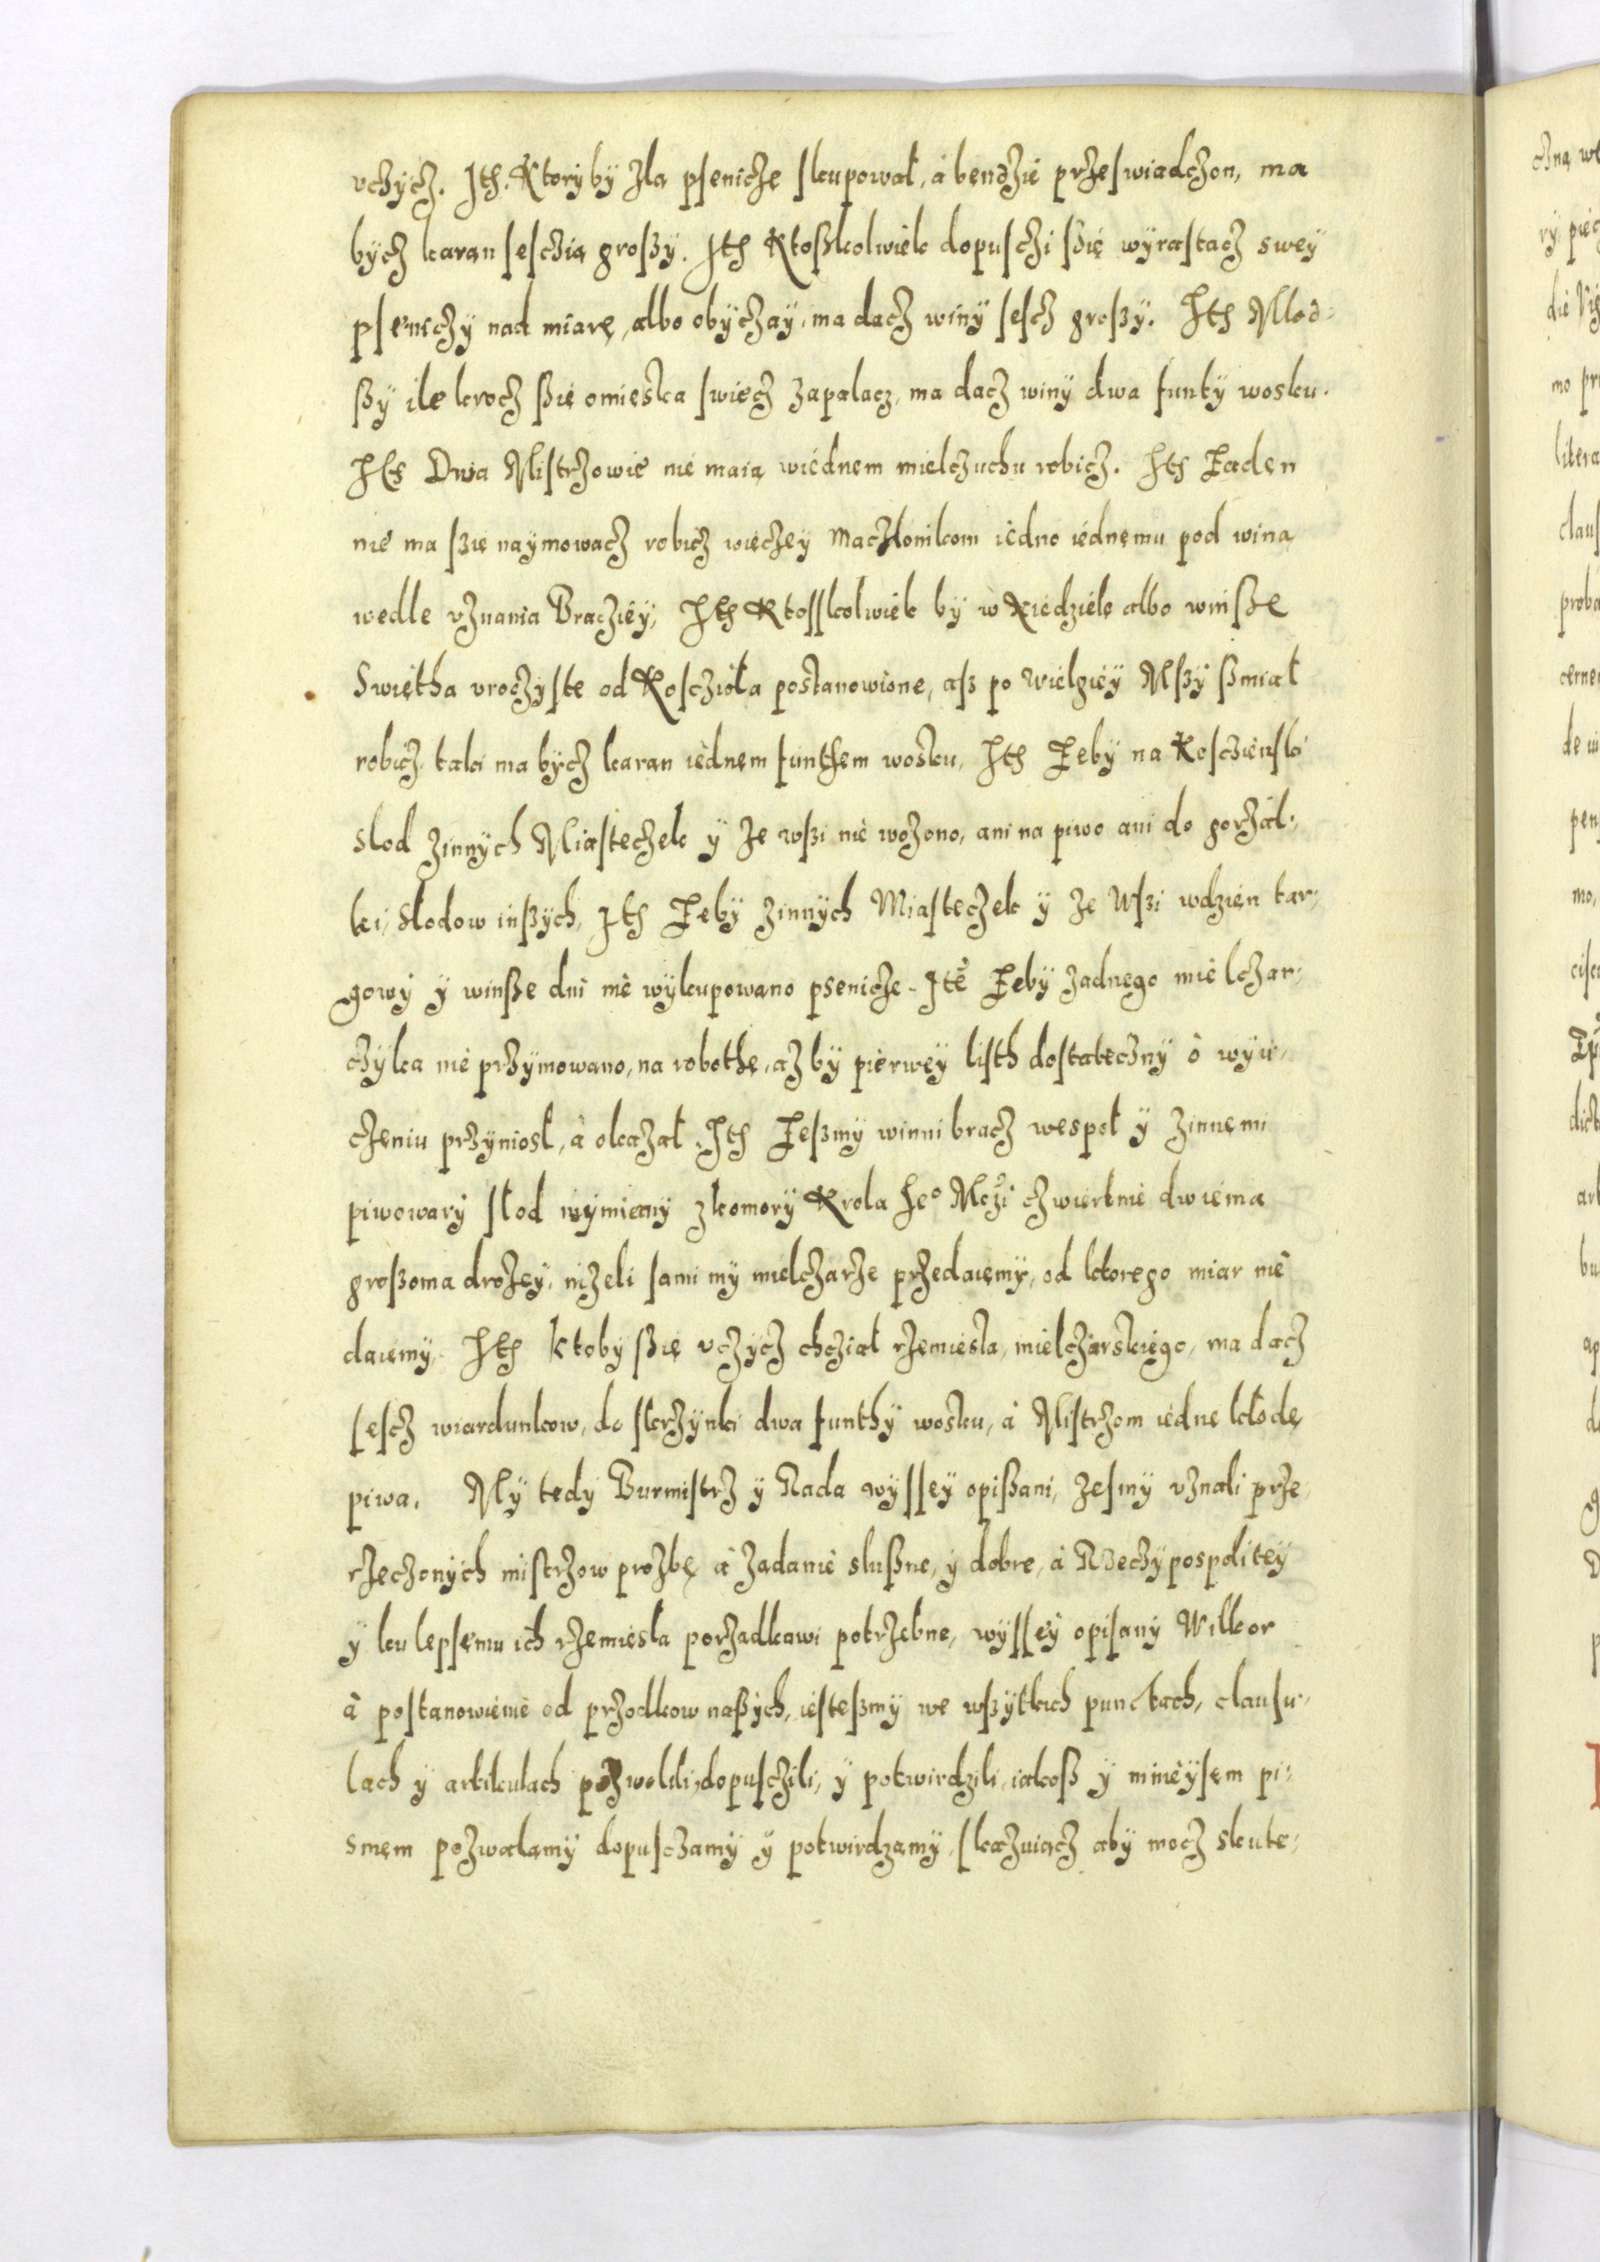 vchÿcz. Ith. Ktorÿ bÿ zla psenicze skupowal, à bendzie przeswiadczon, ma
bÿcz karan sesczią groszÿ. Ith Ktoszkolwiek dopusczi szię wÿrastacz sweÿ
pseniczÿ nad miarę, albo obÿczaÿ, ma dacz winÿ sescz groszÿ. Ith Mlod:
szÿ ile krocz szię omieska swiecz zapalacz, ma dacz winÿ dwa funtÿ wosku.
Ith Dwa Mistrzowie nie maią wiednem mielczuchu robicz. Ith Zaden
nie ma szię naÿmowacz robicz wieczeÿ maczlonikom iedno iednemu pod winą
wedle vznania Bracziëÿ, Ith Ktosskolwiek bÿ w Niedziele albo winsze
Swiętha vroczÿste od Kosczióla postanowione, asz po wielgieÿ Mszÿ szmial
robicz, taki ma bÿcz karan iednem funthem wosku, Ith Zebÿ na Kosczienski
slod zinnÿch Miasteczek ÿ ze wszi nie wożono, ani na piwo ani do gorzal:
ki, slodow inszÿch, Ith Zebÿ zinnÿch Miasteczek ÿ ze Wszi wdzien tar:
gowÿ ÿ winsze dni nie wÿkupowano psenicze. Itē Zebÿ zadnego mielczar:
czÿka nie przÿmowano, na robothę, az bÿ pierweÿ listh dostatecznÿ ò wÿu:
czeniu przÿniosl, à okazal. Ith Zeszmÿ winni bracz wespol ÿ zinnemi
piwowarÿ slod wÿmiernÿ zkomorÿ Krola Ieº Mczi czwiertnie dwiema
groszoma drozeÿ, nizeli sami mÿ mielczarze przedaiemÿ, od ktorego miar nie
daiemÿ. Ith ktobÿ szię vczÿcz chczial rzemiesla, mielczarskiego, ma dacz
sescz wiardunkow, do skrzÿnki dwa funthÿ wosku, à Mistrzom iedne klodę
piwa. Mÿ tedÿ Burmistrz ÿ Rada wÿsseÿ opiszani, zesmÿ vznali prze:
rzeczonÿch mistrzow prozbę à zadanie sluszne, ÿ dobre, à Rzeczÿpospoliteÿ
ÿ ku lepsemu ich rzemiesla porzadkawi potrzebne, wÿsseÿ opisanÿ Wilkor
à postanowienie od przodkow naszÿch, iesteszmÿ we wszÿtkich punctach, clausu:
lach ÿ artikulach pozwolili, dopusczili, ÿ potwirdzili, iakosz ÿ ninieÿsem pi:
smem pozwalamÿ dopusczamÿ ÿ potwirdzamÿ, skazuiącz abÿ mocz skute: